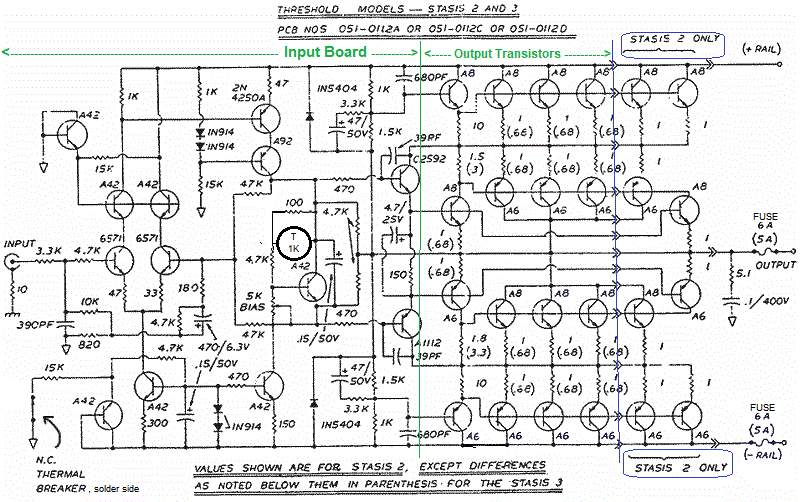 THRESHOLD MODELS — STASIS 2 AND 3
PCB NOS 051-0112A OR 051-0112C OR 051-0112D
Input Board
Output Transistors
STASIS 2 ONLY
(+ RAIL)
680PF
A8
A8
A8
A8
A8
A8
2N
4250A
47
1K
1K
IN5404
3.3K
1K
47/
50V
A42
IN914
IN914
A92
1.5K
39PF
C2592
10
1
(.68)
1
(.68)
1
(.68)
1
1
15K
15K
1.5
(.3)
1
(.68)
1
(.68)
1
(.68)
1
1
A42
A42
47K
100
470
4.7K
4.7/
25V
A6
A6
A8
FUSE
6A
(5A)
INPUT
3.3K
4.7K
6571
6571
T
1K
A42
4.7K
1
(.68)
1
(.68)
150
1
1
OUTPUT
5.1
.1/400V
10
390PF
10K
820
47
33
180
4.7K
470/6.3V
.15/50V
5K
BIAS
47K
470
.15/50V
A8
A8
A8
A6
A6
A1112
39PF
1.8
(3.3)
1
(.68)
1
(.68)
1
(.68)
1
1
15K
4.7K
A42
A42
300
470
IN914
A42
150
47/
50V
1.5K
3.3K
IN5404
1K
680PF
10
1
(.68)
1
(.68)
1
(.68)
1
1
A6
A6
A6
A6
A6
A6
FUSE
6A
(5A)
(- RAIL)
STASIS 2 ONLY
N.C.
THERMAL
BREAKER, solder side
VALUES SHOWN ARE FOR STASIS 2, EXCEPT DIFFERENCES
AS NOTED BELOW THEM IN PARENTHESIS FOR THE STASIS 3